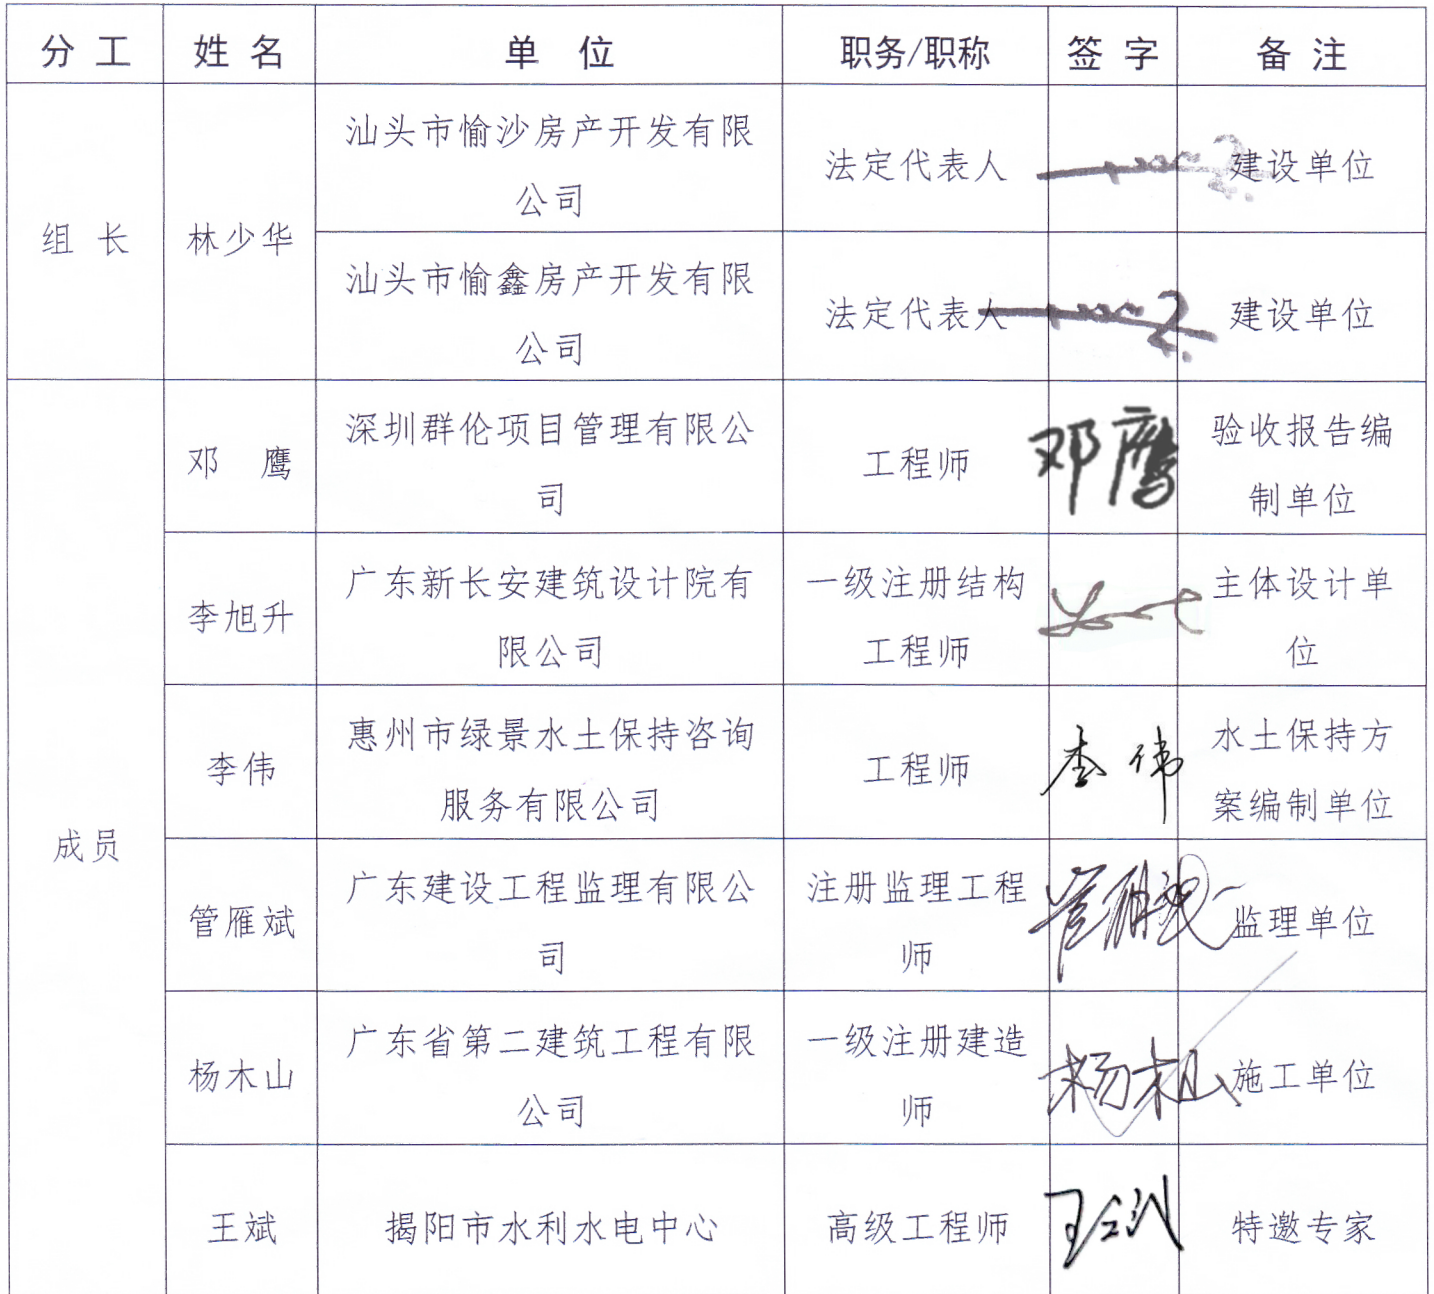 分 工 姓 名 单 位 职务/职称 签 字 备 注
汕头市愉沙房产开发有限
公司
法定代表人
建设单位
组 长
林少华
汕头市愉鑫房产开发有限
公司
法定代表人
建设单位
成员
邓 鹰
深圳群伦项目管理有限公
司
工程师
邓鹰
验收报告编
制单位
李旭升
广东新长安建筑设计院有
限公司
一级注册结构
工程师
主体设计单
位
李伟
惠州市绿景水土保持咨询
服务有限公司
工程师
李伟
水土保持方
案编制单位
管雁斌
广东建设工程监理有限公
司
注册监理工程
师
监理单位
杨木山
广东省第二建筑工程有限
公司
一级注册建造
师
杨木山
施工单位
王斌
揭阳市水利水电中心
高级工程师
特邀专家